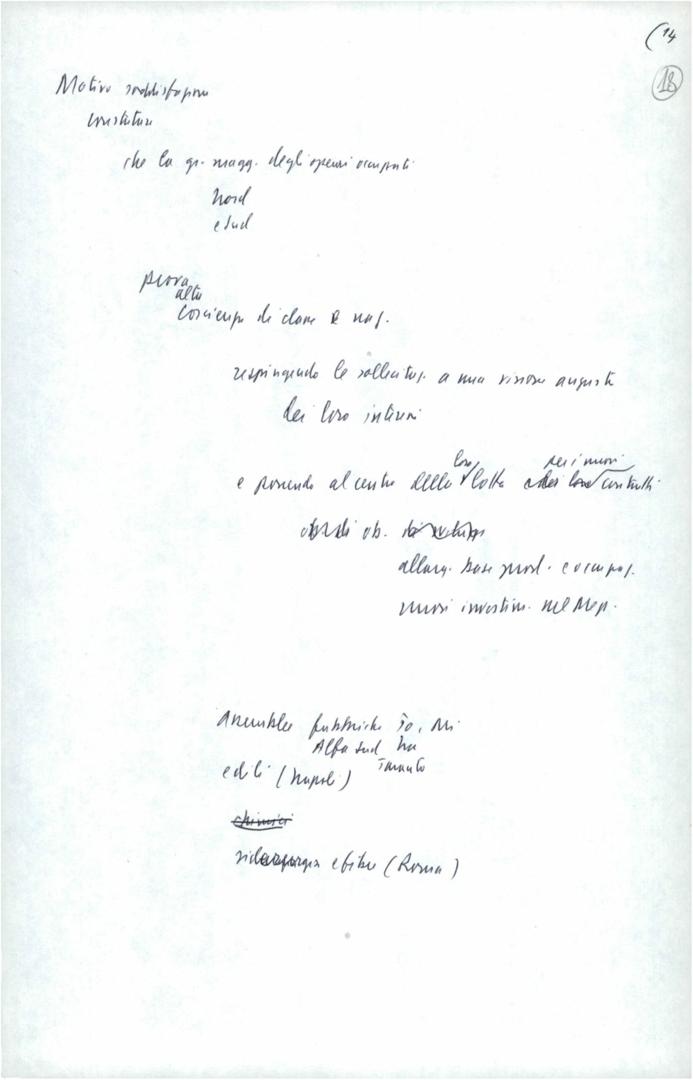 (14
18
Motivo soddisfazione
constatare
che la gr. magg. degli operai occupati
Nord
e Sud
prova
alta
coscienza di classe e naz.
respingendo le sollecitaz. a una visione angusta
dei loro interessi
loro per i nuovi
e ponendo al centro della lotta contratti
ob.
allarg. base prod. e occupaz.
nuovi investim. nel Mezz.
Assemblee fabbriche To, Mi
Alfa Sud Na
edili (Napoli) Taranto
chimici
e fibre (Roma)